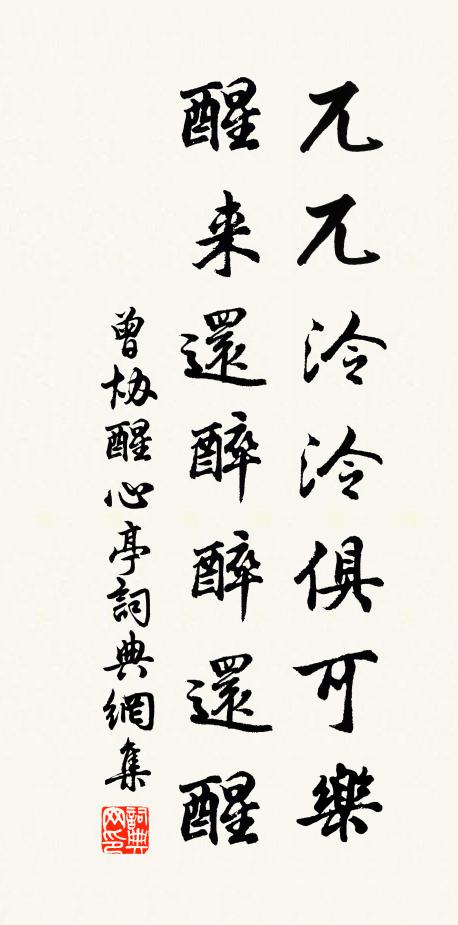 兀兀泠泠俱可樂
醒来還醉醉還醒
曾協醒心亭詞典網集
詞典网印